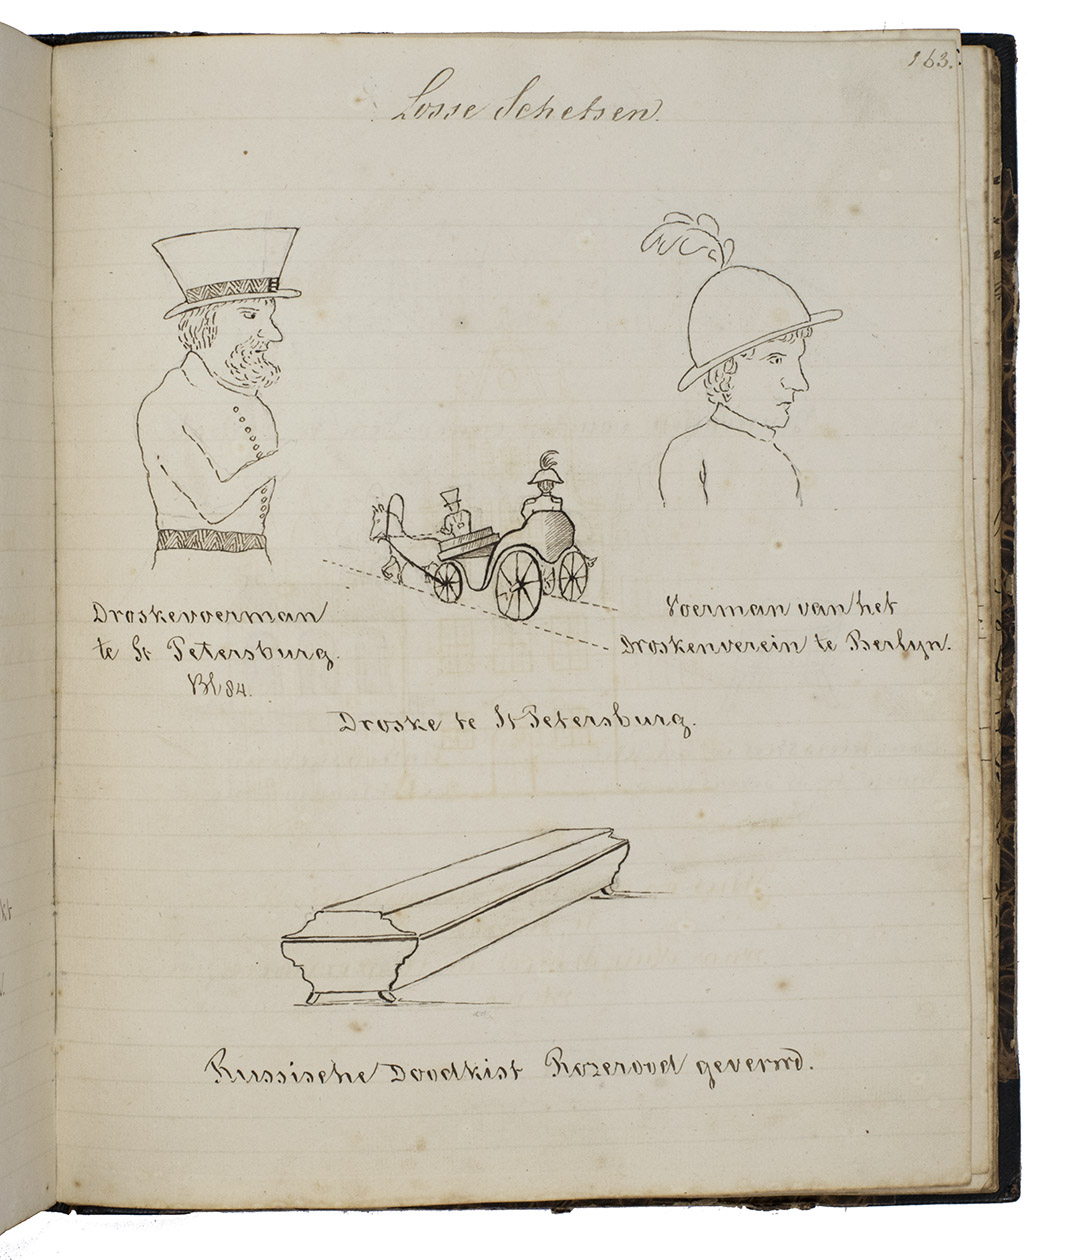 163.
Losse Schetsen.
Droskevoerman
te St Petersburg.
Bl 84.
Voerman van het
Droskenverein te Berlyn.
Droske te St Petersburg.
Russische Doodkist Rozerood geverwd.